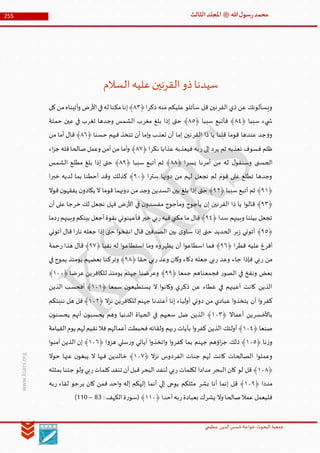 محمد رسول الله ﷺ المجلد الثالث
255
سيدنا ذو القرنين عليه السلام
ويسألونك عن ذي القرنين قل سأتلو عليكم منه ذكرا ﴿٨٣﴾ إنا مكنا له في الأرض وآتيناه من كل
شيء سببا ﴿٨٤﴾ فأتبع سببا ﴿٨٥﴾ حتى إذا بلغ مغرب الشمس وجدها تغرب في عين حمئة
ووجد عندها قوما قلنا يا ذا القرنين إما أن تعذب وإما أن تتخذ فيهم حسنا ﴿٨٦﴾ قال أما من
ظلم فسوف نعذبه ثم يرد إلى ربه فيعذبه عذابا نكرا ﴿٨٧﴾ وأما من آمن وعمل صالحا فله جزاء
الحسنى وسنقول له من أمرنا يسرا ﴿٨٨﴾ ثم أتبع سببا ﴿٨٩﴾ حتى إذا بلغ مطلع الشمس
وجدها تطلع على قوم لم نجعل لهم من دونها سترا ﴿٩٠﴾ كذلك وقد أحطنا بما لديه خبرا
﴿٩١﴾ ثم أتبع سببا ﴿٩٢﴾ حتى إذا بلغ بين السدين وجد من دونهما قوما لا يكادون يفقهون قولا
﴿٩٣﴾ قالوا يا ذا القرنين إن يأجوج ومأجوج مفسدون في الأرض فهل نجعل لك خرجا على أن
تجعل بيننا وبينهم سدا ﴿٩٤﴾ قال ما مكني فيه ربي خير فأعينوني بقوة أجعل بينكم وبينهم ردما
﴿٩٥﴾ آتوني زبر الحديد حتى إذا ساوى بين الصدفين قال انفخوا حتى إذا جعله نارا قال آتوني
أفرغ عليه قطرا ﴿٩٦﴾ فما اسطاعوا أن يظهروه وما استطاعوا له نقبا ﴿٩٧﴾ قال هذا رحمة
من ربي فإذا جاء وعد ربي جعله دكاء وكان وعد ربي حقا ﴿٩٨﴾ وتركنا بعضهم يومئذ يموج في
بعض ونفخ في الصور فجمعناهم جمعا ﴿٩٩﴾ وعرضنا جهنم يومئذ للكافرين عرضا ﴿١٠٠﴾
الذين كانت أعينهم في غطاء عن ذكري وكانوا لا يستطيعون سمعا ﴿١٠١﴾ أفحسب الذين
كفروا أن يتخذوا عبادي من دوني أولياء إنا أعتدنا جهنم للكافرين نزلا ﴿١٠٢﴾ قل هل ننبئكم
بالأخسرين أعمالا ﴿١٠٣﴾ الذين ضل سعيهم في الحياة الدنيا وهم يحسبون أنهم يحسنون
صنعا ﴿١٠٤﴾ أولئك الذين كفروا بآيات ربهم ولقائه فحبطت أعمالهم فلا نقيم لهم يوم القيامة
وزنا ﴿١٠٥﴾ ذلك جزاؤهم جهنم بما كفروا واتخذوا آياتي ورسلي هزوا ﴿١٠٦﴾ إن الذين آمنوا
وعملوا الصالحات كانت لهم جنات الفردوس نزلا ﴿١٠٧﴾ خالدين فيها لا يبغون عنها حولا
﴿١٠٨﴾ قل لو كان البحر مدادا لكلمات ربي لنفد البحر قبل أن تنفد كلمات ربي ولو جئنا بمثله
مددا ﴿١٠٩﴾ قل إنما أنا بشر مثلكم يوحى إلي أنما إلهكم إله واحد فمن كان يرجو لقاء ربه
فليعمل عملا صالحا ولا يشرك بعبادة ربه أحدا ﴿١١٠﴾ (سورة الكهف: 83 – 110)
www.kosrs.org
جمعية البحوث خواجة شمس الدين عظيمي